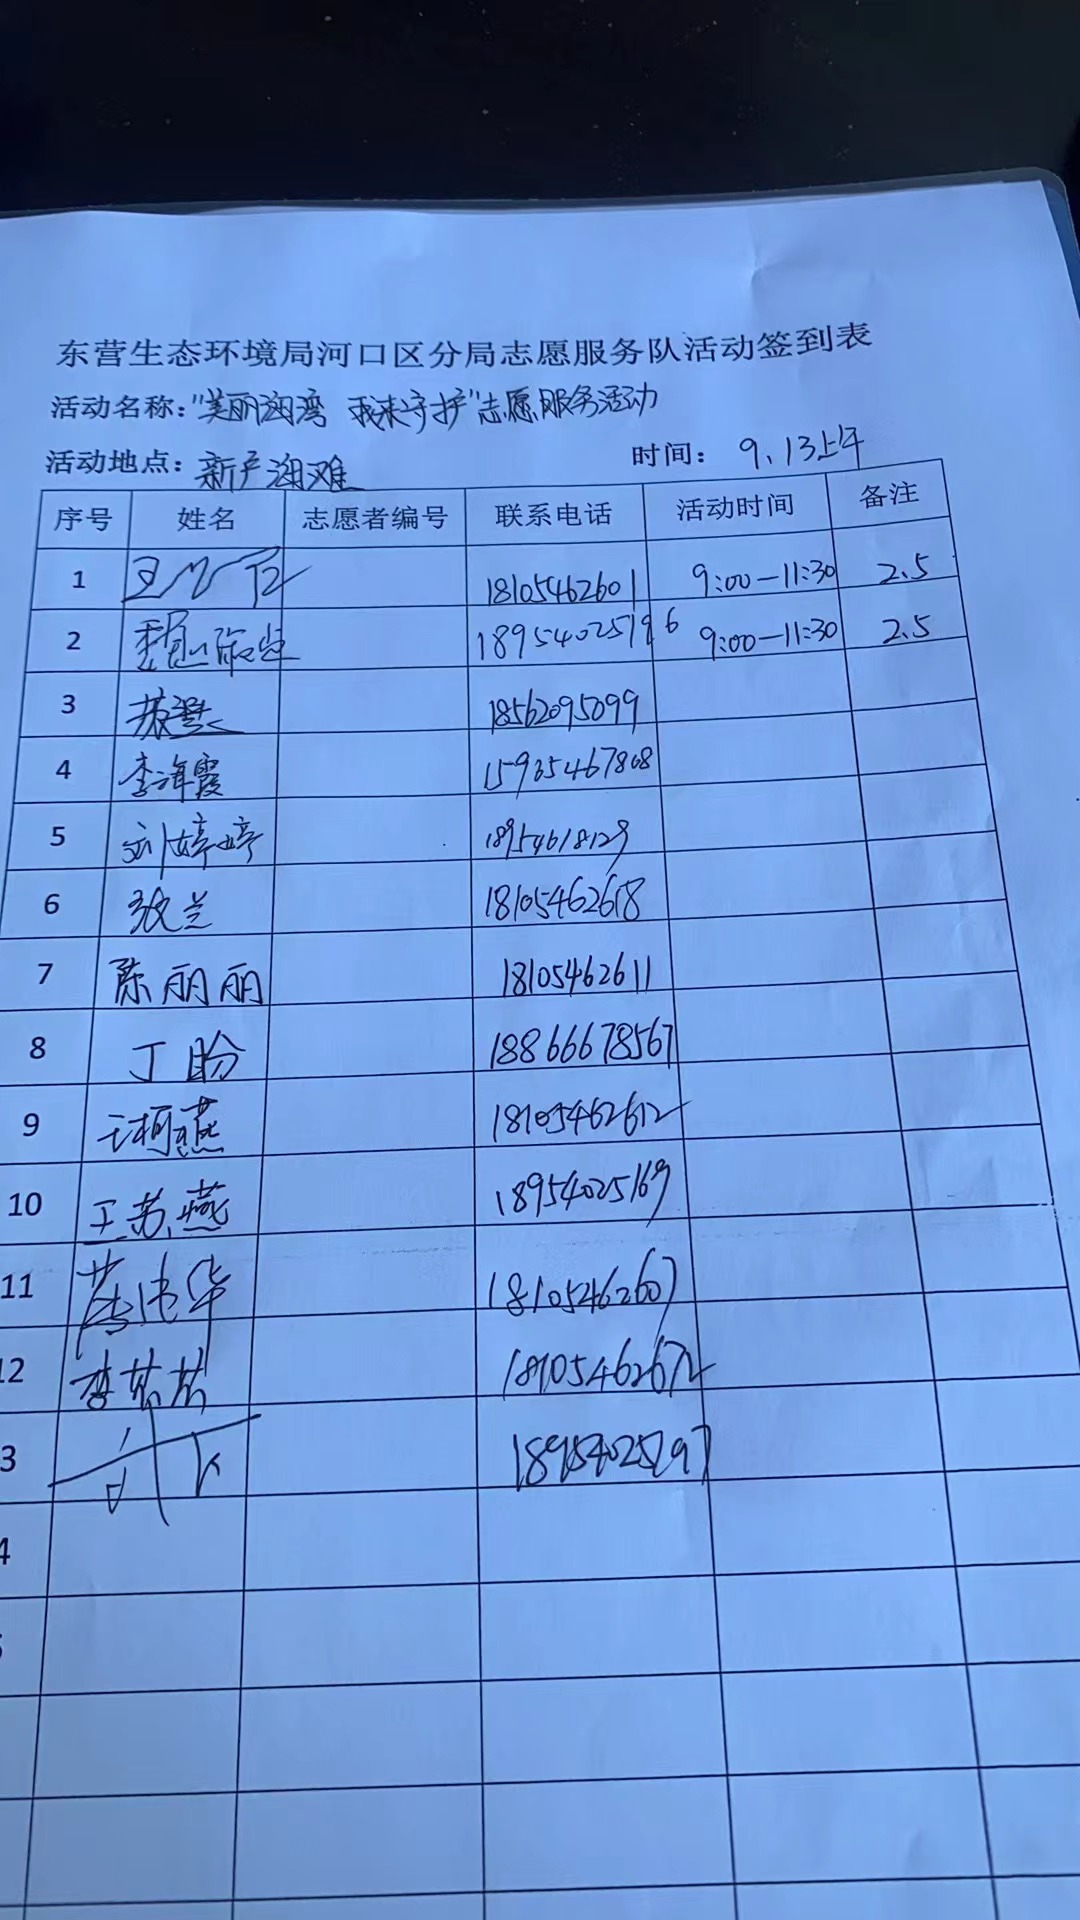 东营生态环境局河口区分局志愿服务队活动签到表
活动名称："美丽海湾 我来守护"志愿服务活动
活动地点：新户海滩 时间： 9.13上午
序号 姓名 志愿者编号 联系电话 活动时间 备注
1 18105462601 9:00-11:30 2.5
2 18954025196 9:00-11:30 2.5
3 18562095099
4 李海霞 15965467808
5 刘婷婷 18954618129
6 张兰 18105462618
7 陈丽丽 18105462611
8 丁盼 18866678567
9 18105462612
10 王苏燕 18954025169
11 18105462607
12 李苁苁 18105462672
3 18954025297
4